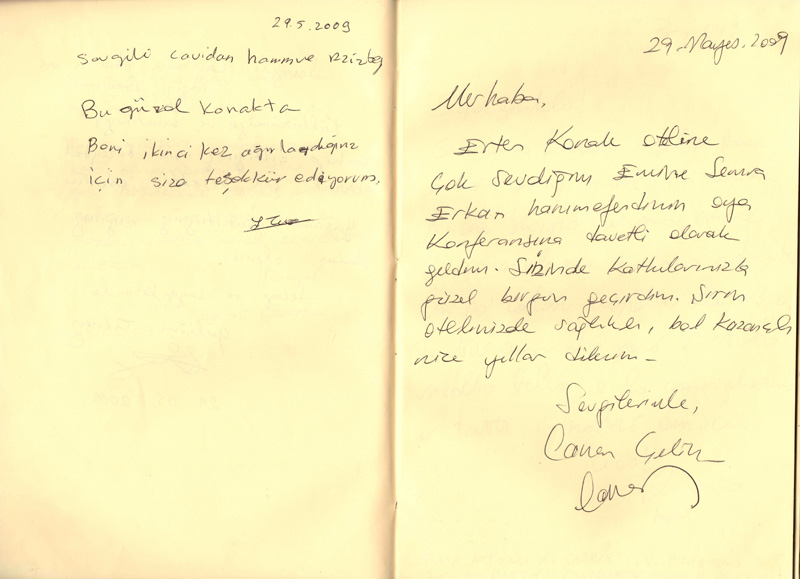 29.5.2009
Sevgili Cavidan hanım ve
Bu güzel Konakta
Beni ikinci kez ağırladığınız
için size teşekkür ediyorum,
29.Mayıs.2009
Merhaba,
Erten Konak oteline
Çok sevdiğim Emine Semra
Erkan hanımefendinin oya
Konferansına davetli olarak
geldim. Sizinde katkılarınızla
güzel birgün geçirdim. Şirin
otelinizde sağlıklı, bol kazançlı
nice yıllar dilerim -
Sevgilerimle,
Canan Çelik
Canan